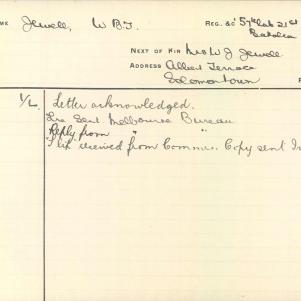 ME Jewell, W B J. REG. &c 57th Cas 21st
Batalia
NEXT OF KIN Mrs W J Jewell
ADDRESS Albert Terrace
Solomontown
1/L. Letter acknowledged.
Sent Melbourne Bureau
Reply from " "
received from Commn. Copy sent